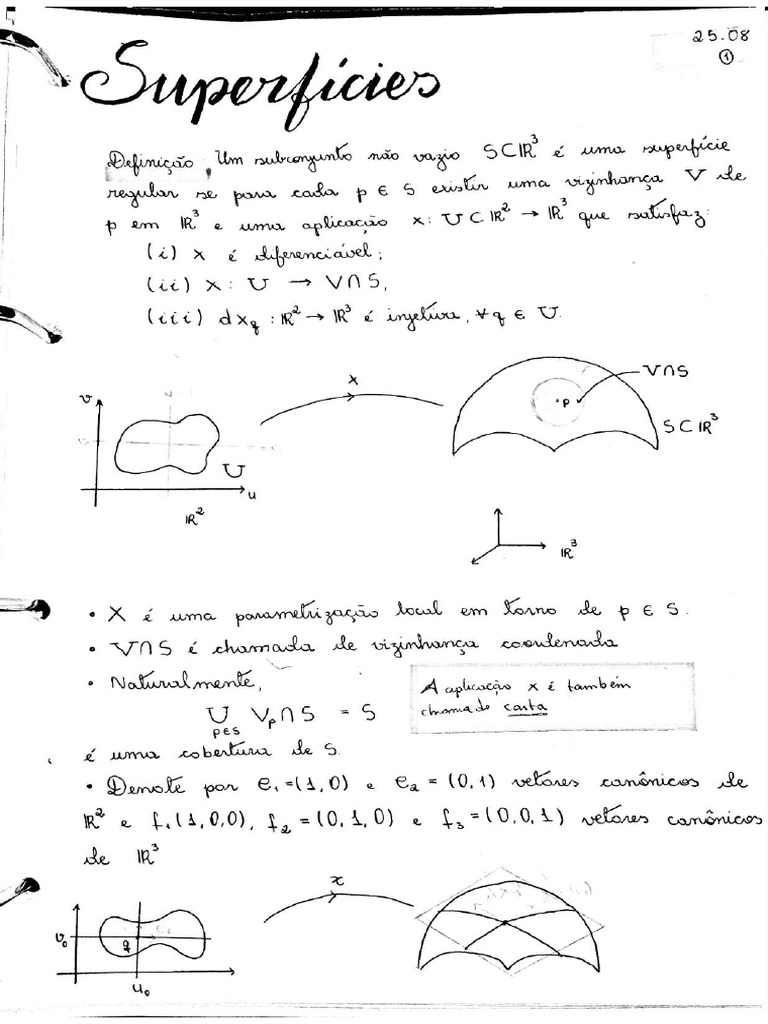 25.08
①
Superfícies
Definição. Um subconjunto não vazio S⊂ℝ³ é uma superfície
regular se para cada p ∈ S existir uma vizinhança V de
p em ℝ³ e uma aplicação x: U⊂ℝ² → ℝ³ que satisfaz:
(i) x é diferenciável;
(ii) x: U → V∩S,
(iii) dx_q : ℝ² → ℝ³ é injetiva, ∀q ∈ U.
x
V∩S
v
p
S⊂ℝ³
U
u
ℝ²
ℝ³
• X é uma parametrização local em torno de p ∈ S.
• V∩S é chamada de vizinhança coordenada
• Naturalmente,
A aplicação x é também
chamada carta
∪ V_p∩S = S
p∈S
é uma cobertura de S.
• Denote por e₁=(1,0) e e₂=(0,1) vetores canônicos de
ℝ² e f₁(1,0,0), f₂=(0,1,0) e f₃=(0,0,1) vetores canônicos
de ℝ³
x
v₀
q
u₀